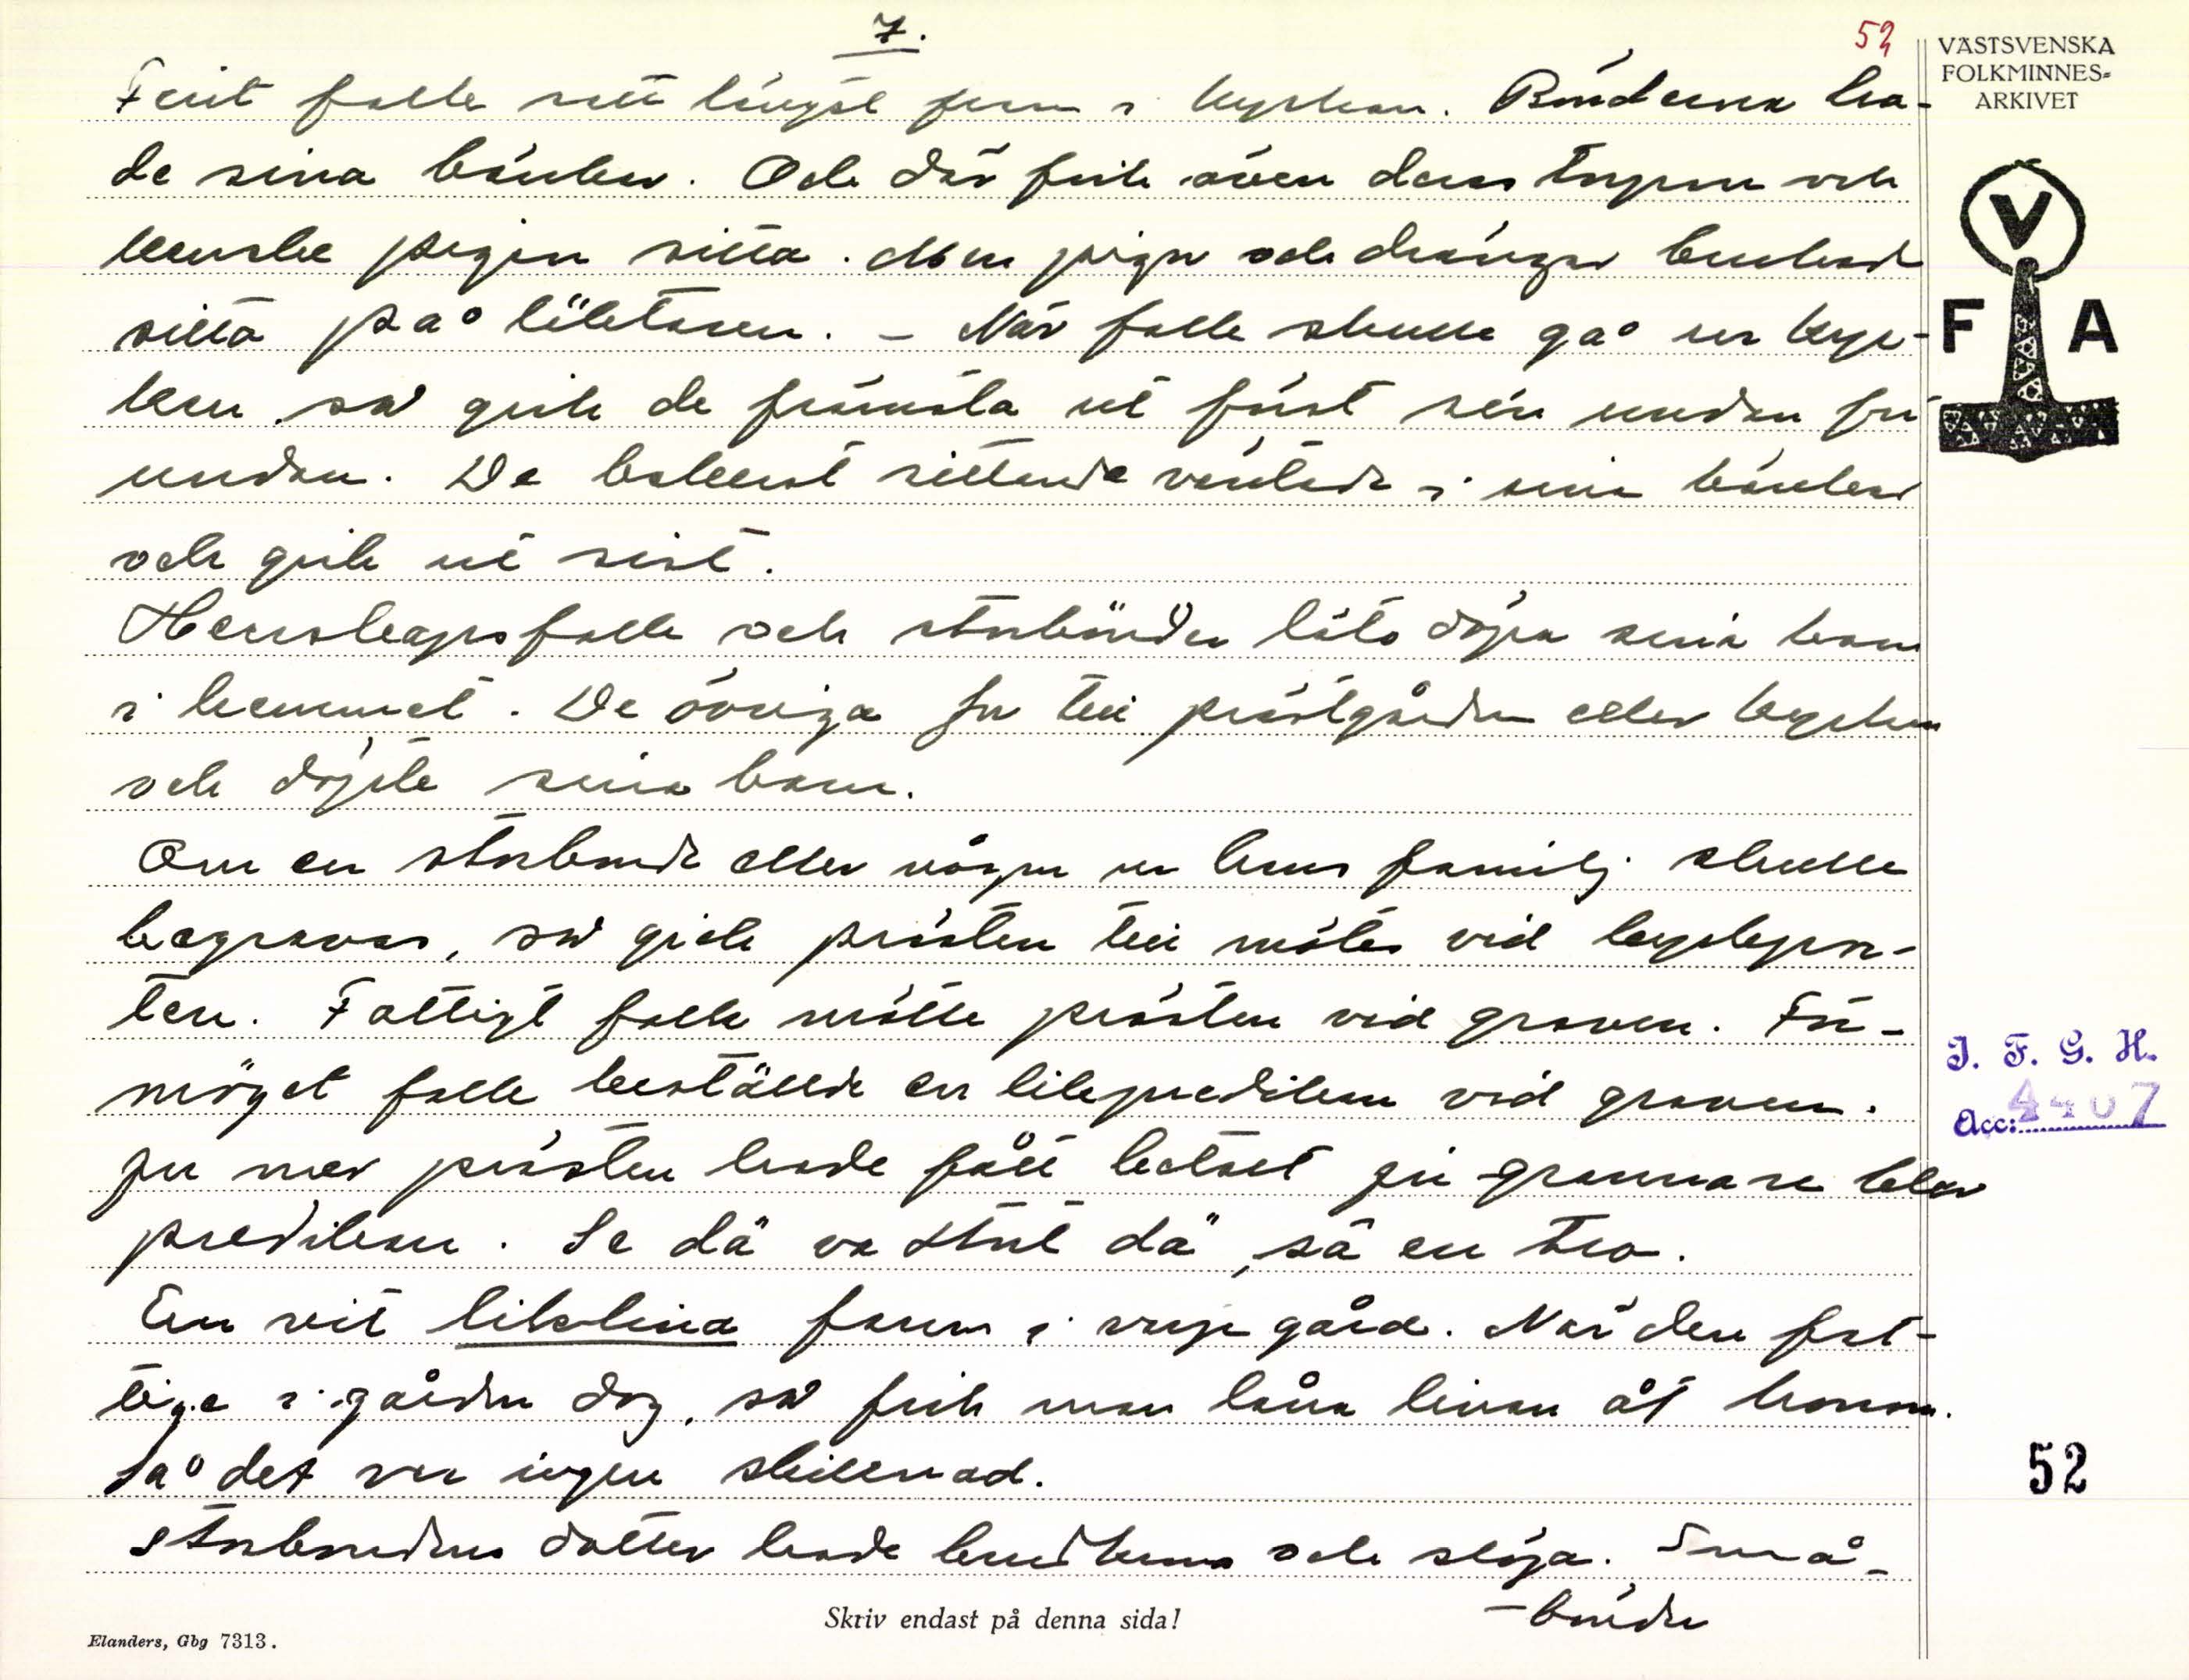 7.
52
VÄSTSVENSKA
FOLKMINNES-
ARKIVET
V
F A
Fint folk satt längst fram i kyrkan. Bönderna ha-
de sina bänkar. Och där fick även deras torpare och
kanske pigan sitta. Men pigor och drängar brukade
sitta på läktaren. – När folk skulle gå ur kyr-
kan så gick de främsta ut först sen undan för
undan. De bakerst sittande väntade i sina bänkar
och gick ut sist.
Herrskapsfolk och storbönder läto döpa sina barn
i hemmet. De övriga for till prästgården eller kyrkan
och döpte sina barn.
Om en storbonde eller någon ur hans familj skulle
begravas, så gick prästen till mötes vid kyrkpor-
ten. Fattigt folk mötte prästen vid graven. För-
möget folk beställde en likpredikan vid graven.
Ju mer prästen hade fått betalt ju grannare blev
predikan. Se dä va stort dä, sä en tro.
En vit liklina fanns i varje gård. När den fat-
tige i gården dog, så fick man låna linan åt honom.
Så det var ingen skillnad.
Storbondens dotter hade brudkrona och slöja. Små-
-bönder
J. F. G. H.
Acc: 4407
52
Skriv endast på denna sida!
Elanders, Gbg 7313.